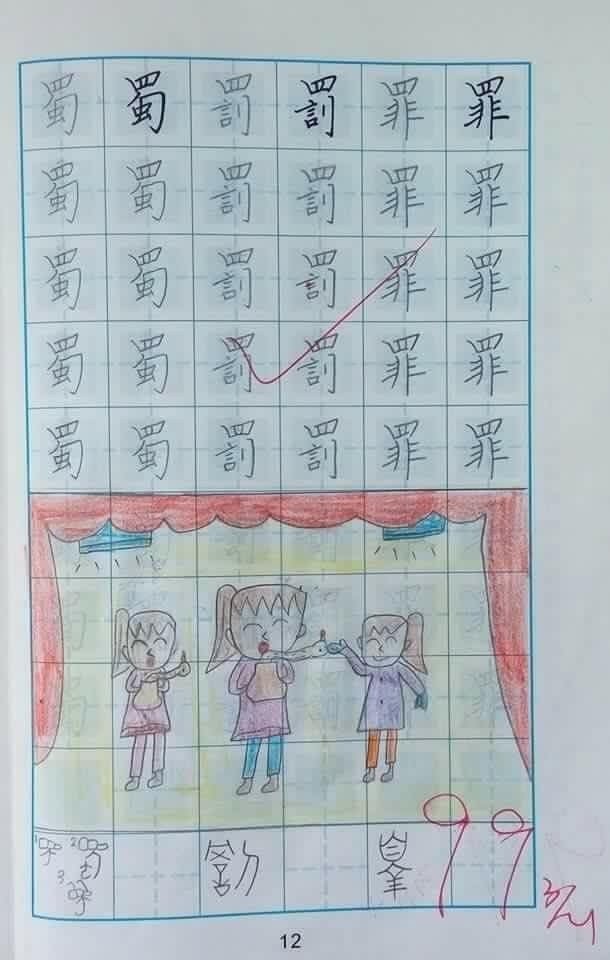 蜀 蜀 罰 罰 罪 罪
蜀 蜀 罰 罰 罪 罪
蜀 蜀 罰 罰 罪 罪
蜀 蜀 罰 罰 罪 罪
蜀 蜀 罰 罰 罪 罪
99
12